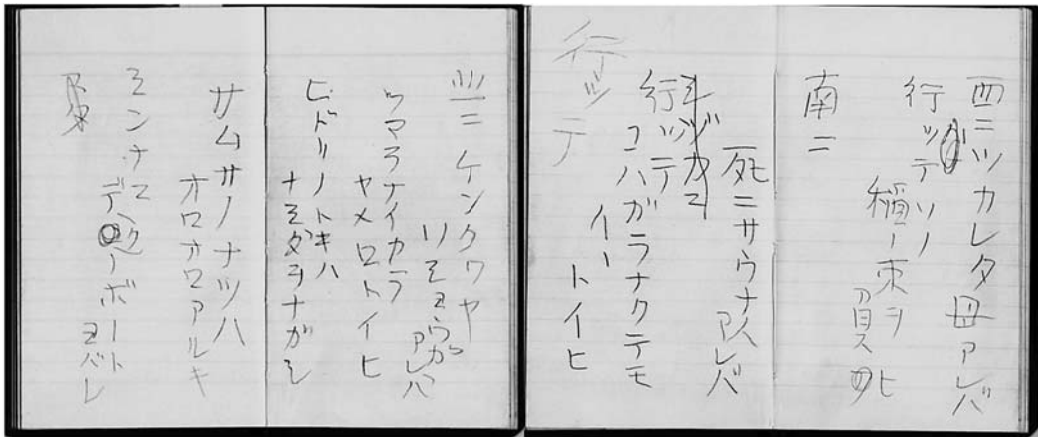 西ニツカレタ母アレバ
行ッテソノ
稲ノ束ヲ
負ヒ
南ニ
死ニサウナ人アレバ
行ッテ
コハガラナクテモ
イヽトイヒ
行ッテ
北ニケンクヮヤ
ソショウガアレバ
ツマラナイカラ
ヤメロトイヒ
ヒドリノトキハ
ナミダヲナガシ
サムサノナツハ
オロオロアルキ
ミンナニ
デクノボート
ヨバレ